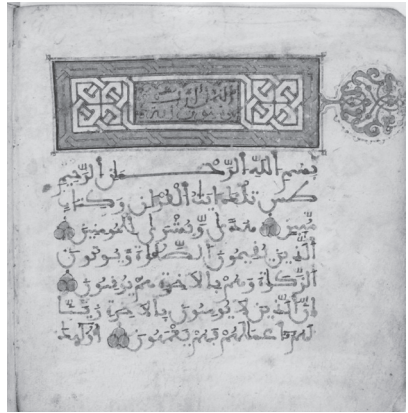 بِسْمِ اللَّهِ الرَّحْمٰنِ الرَّحِيمِ
طس تِلْكَ ءَايَاتُ الْقُرْءَانِ وَكِتَابٍ
مُّبِينٍ هُدًى وَبُشْرَى لِلْمُومِنِينَ
الَّذِينَ يُقِيمُونَ الصَّلَوٰةَ وَيُوتُونَ
الزَّكَوٰةَ وَهُم بِالَاخِرَةِ هُمْ يُوقِنُونَ
إِنَّ الَّذِينَ لَا يُومِنُونَ بِالَاخِرَةِ زَيَّنَّا
لَهُمُ أَعْمَالَهُمْ فَهُمْ يَعْمَهُونَ أُوْلَٰئِكَ